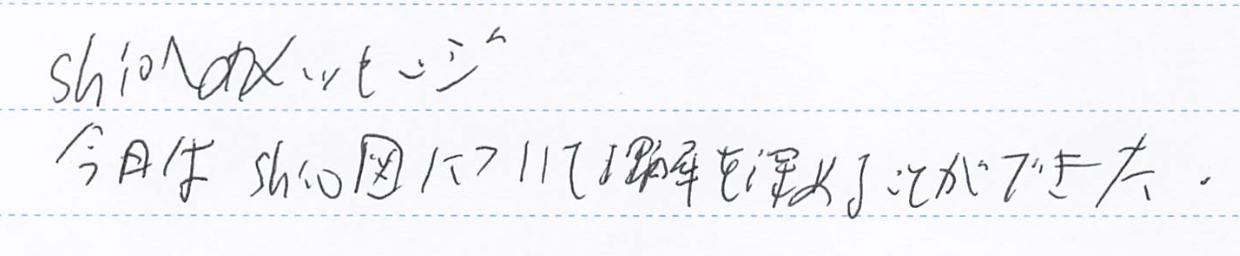 shioへのメッセージ
今日は shio図について理解を深めることができた.